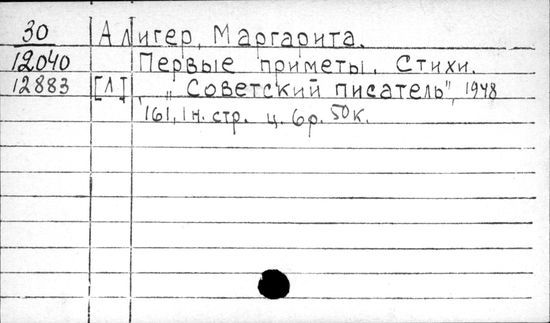 30 Алигер, Маргарита.
12040 Первые приметы. Стихи.
12883 [Л] „Советский писатель", 1948
161, 1н. стр. ц. 6р. 50к.